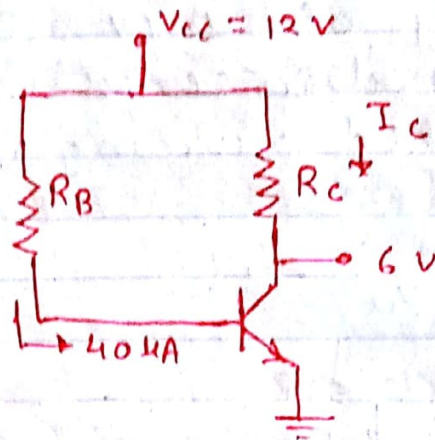 Vcc = 12 V
Ic
RB
Rc
6 V
40 µA